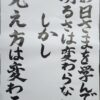 日さまを学んで
るさは変わらな
しかし
え方は変わる